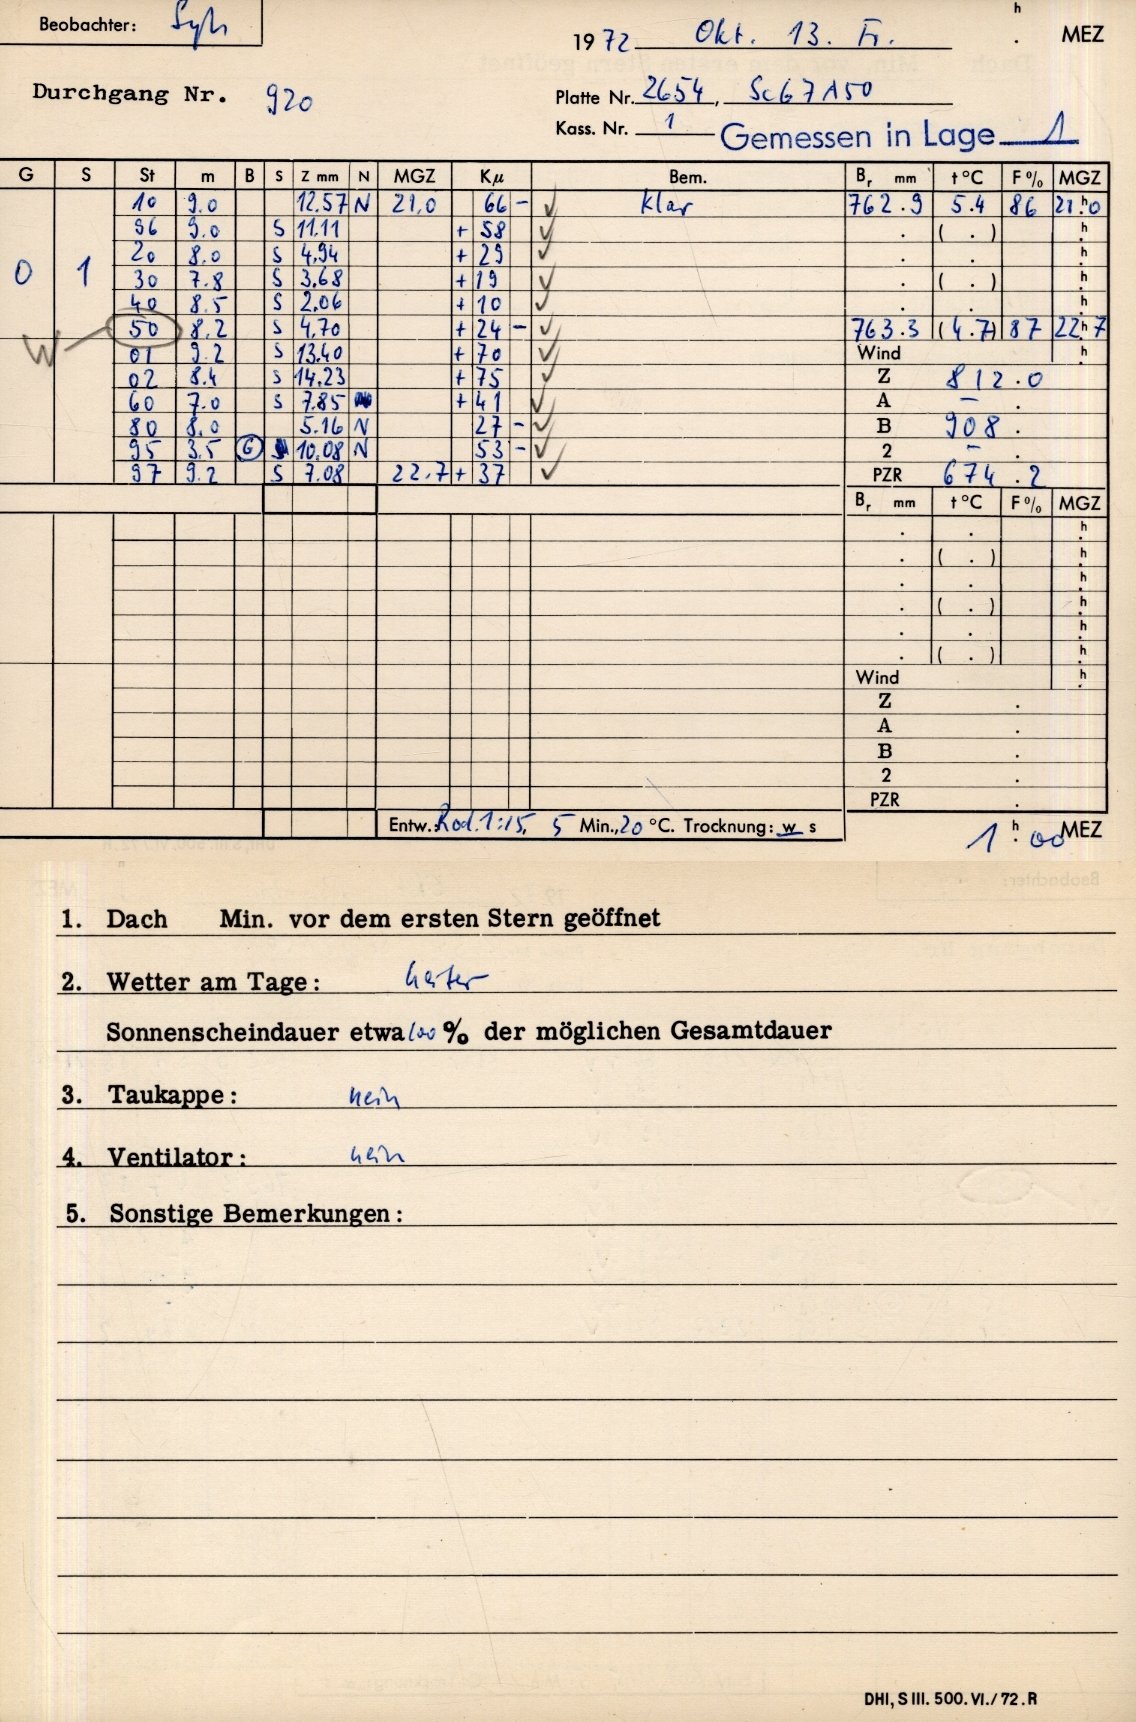 Beobachter: Syh
h
1972 Okt. 13. Fr. . MEZ
Durchgang Nr. 920
Platte Nr. 2654, Sc67A50
Kass. Nr. 1 Gemessen in Lage 1
G S St m B S Z mm N MGZ Kµ Bem. Br mm t °C F % MGZ
10 9.0 12.57 N 21,0 66 - ✓ klar 762.9 5.4 86 21h.0
96 9.0 S 11.11 + 58 ✓ . ( . ) h
20 8.0 S 4.94 + 29 ✓ . . h
0 1 30 7.8 S 3.68 + 19 ✓ . ( . ) h
40 8.5 S 2.06 + 10 ✓ . . h
W 50 8.2 S 4.70 + 24 - ✓ 763.3 (4.7) 87 22h.7
01 9.2 S 13.40 + 70 ✓ Wind h
02 8.4 S 14.23 + 75 ✓ Z 812.0
60 7.0 S 7.85 + 41 ✓ A – .
80 8.0 5.16 N 27 - ✓ B 908 .
95 3.5 G 10.08 N 53 - ✓ 2 – .
97 9.2 S 7.08 22.7 + 37 ✓ PZR 674.2
Br mm t °C F % MGZ
. . h
. ( . ) h
. . h
. ( . ) h
. . h
. ( . ) h
Wind h
Z .
A .
B .
2 .
PZR .
Entw.: Rod. 1:15, 5 Min., 20 °C. Trocknung: w s
1 h. 00 MEZ
1. Dach Min. vor dem ersten Stern geöffnet
2. Wetter am Tage: heiter
Sonnenscheindauer etwa 100 % der möglichen Gesamtdauer
3. Taukappe: nein
4. Ventilator: nein
5. Sonstige Bemerkungen:
DHI, S III. 500. VI./72. R